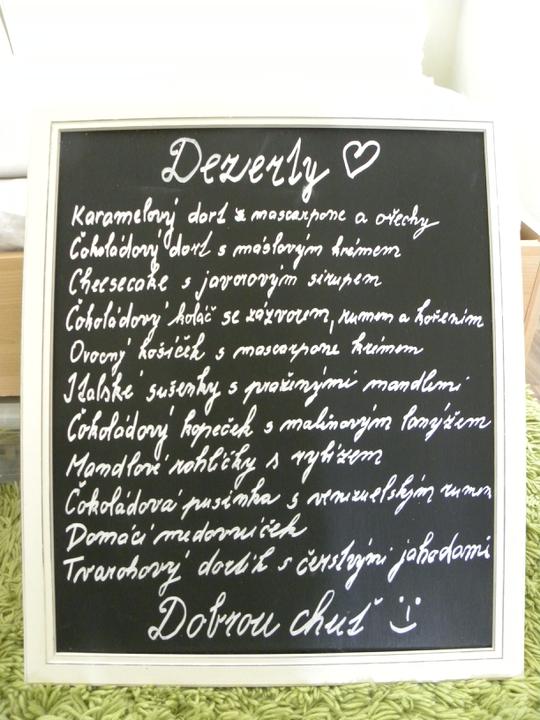 Dezerty ♡
Karamelový dort z mascarpone a ořechy
Čokoládový dort s máslovým krémem
Cheesecake s javorovým sirupem
Čokoládový koláč se zázvorem, rumem a kořením
Ovocný košíček s mascarpone krémem
Italské sušenky s praženými mandlemi
Čokoládový kopeček s malinovým lanýžem
Mandlové rohlíčky s rybízem
Čokoládová pusinka s venezuelským rumem
Domácí medovníček
Tvarohový dortík s čerstvými jahodami
Dobrou chuť :)